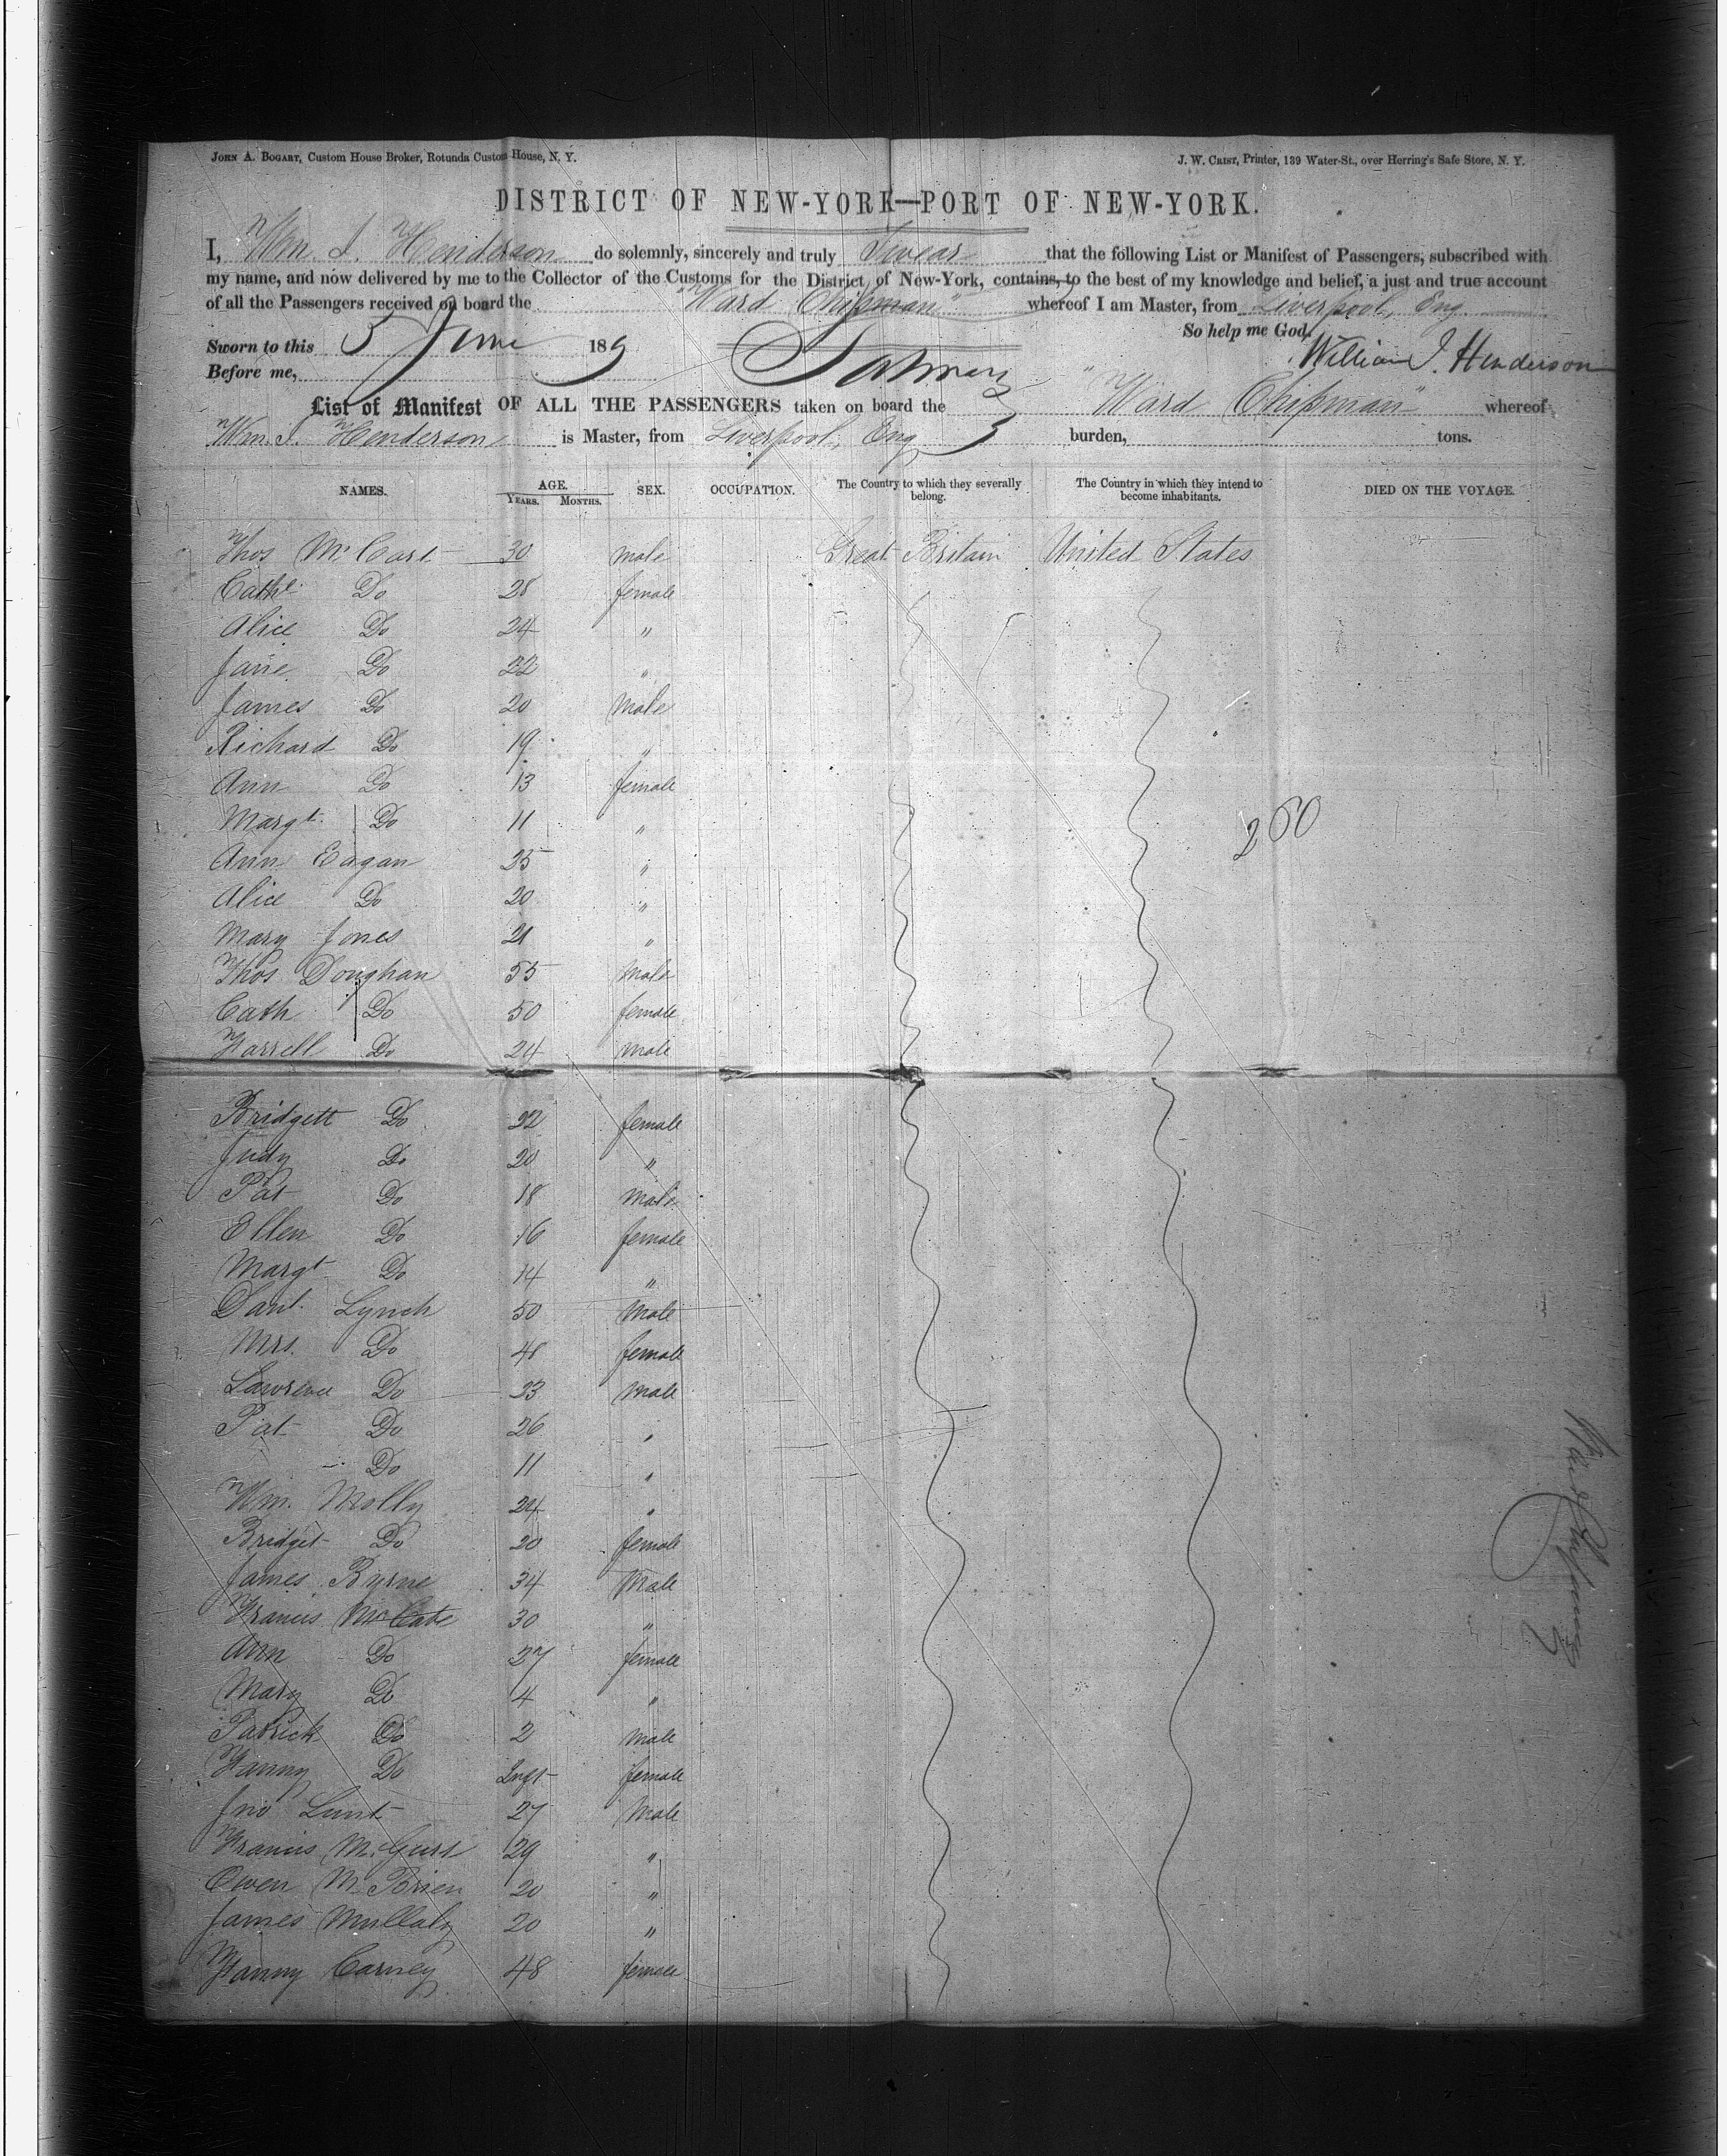 JOHN A. BOGART, Custom House Broker, Rotunda Custom House, N. Y.
J. W. CRIST, Printer, 139 Water-St., over Herring's Safe Store, N. Y.
DISTRICT OF NEW-YORK—PORT OF NEW-YORK.
I, Wm. J. Henderson do solemnly, sincerely and truly Swear that the following List or Manifest of Passengers, subscribed with
my name, and now delivered by me to the Collector of the Customs for the District of New-York, contains, to the best of my knowledge and belief, a just and true account
of all the Passengers received on board the "Ward Chipman" whereof I am Master, from Liverpool, Eng.
So help me God,
Sworn to this 5 June 185
William J. Henderson
Before me,
List of Manifest OF ALL THE PASSENGERS taken on board the "Ward Chipman" whereof
Wm. J. Henderson is Master, from Liverpool, Eng burden, tons.
NAMES. AGE. YEARS. MONTHS. SEX. OCCUPATION. The Country to which they severally belong. The Country in which they intend to become inhabitants. DIED ON THE VOYAGE.
Thos 30 male Great Britain United States
Cathe Do 28 female
Alice Do 24 "
Jane Do 22 "
James Do 20 Male
Richard Do 19 "
Ann Do 13 female
Margt Do 11 "
Ann Eagan 25 "
Alice Do 20 "
260
Mary Jones 21 "
Thos Doughan 55 Male
Cath Do 50 female
Farrell Do 24 male
Bridgett Do 22 female
Judy Do 20 "
Pat Do 18 male
Ellen Do 16 female
Margt Do 14 "
Danl. Lynch 50 Male
Mrs. Do 48 female
Lawrence Do 23 Male
Pat Do 26 "
Do 11 "
Wm. Molly 24 "
Bridget Do 20 female
James Byrne 34 Male
Francis McCabe 30 "
Ann Do 27 female
Mary Do 4 "
Patrick Do 2 male
Fanny Do Inft female
Jno Lunt 27 Male
Francis 29 "
Owen McBrien 20 "
James Mullaly 20 "
Fanny Carney 48 female
Ward Chipman